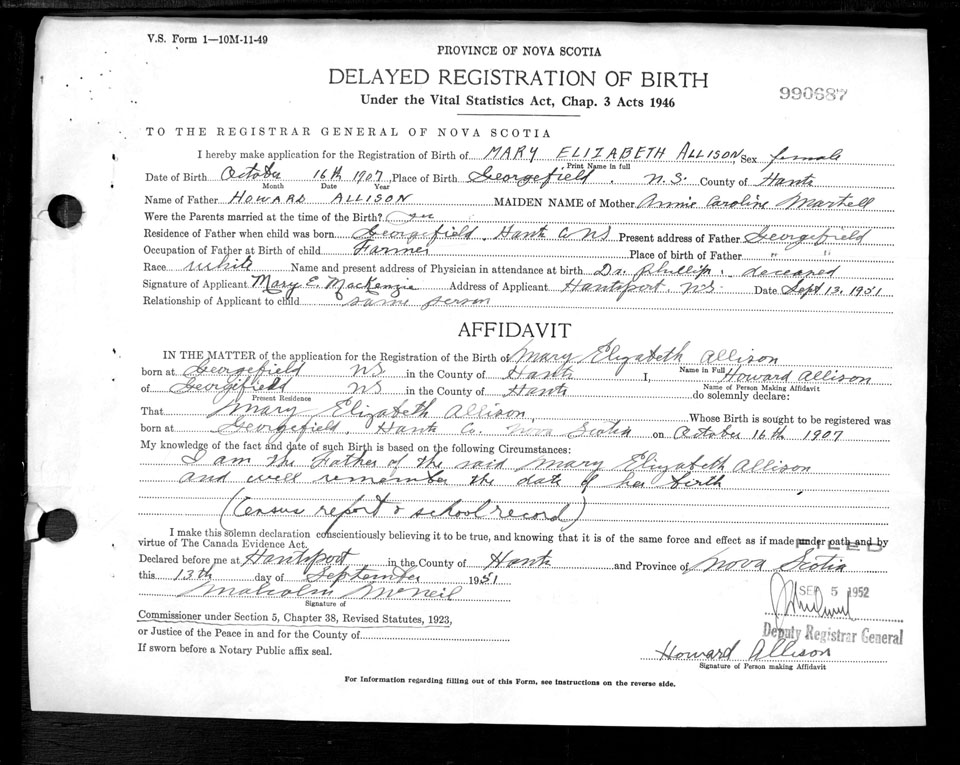 V.S. Form 1—10M-11-49
PROVINCE OF NOVA SCOTIA
DELAYED REGISTRATION OF BIRTH
Under the Vital Statistics Act, Chap. 3 Acts 1946
990687
TO THE REGISTRAR GENERAL OF NOVA SCOTIA
I hereby make application for the Registration of Birth of MARY ELIZABETH ALLISON, Sex female
Print Name in full
Date of Birth October 16th 1907, Place of Birth Georgefield, N.S. County of Hants
Month Date Year
Name of Father HOWARD ALLISON MAIDEN NAME of Mother Annie Caroline Martell
Were the Parents married at the time of the Birth? yes
Residence of Father when child was born Georgefield, Hants Co NS Present address of Father Georgefield
Occupation of Father at Birth of child Farmer Place of birth of Father " "
Race white Name and present address of Physician in attendance at birth Dr. Phillip, deceased
Signature of Applicant Mary E. MacKenzie Address of Applicant Hantsport, N.S. Date Sept 13, 1951
Relationship of Applicant to child same person
AFFIDAVIT
IN THE MATTER of the application for the Registration of the Birth of Mary Elizabeth Allison
Name in Full
born at Georgefield NS in the County of Hants I, Howard Allison
Name of Person Making Affidavit
of Georgefield NS in the County of Hants do solemnly declare:
Present Residence
That Mary Elizabeth Allison, Whose Birth is sought to be registered was
born at Georgefield, Hants Co. Nova Scotia on October 16th 1907
My knowledge of the fact and date of such Birth is based on the following Circumstances:
I am the Father of the said Mary Elizabeth Allison
and well remember the date of her birth
(Census report & school record)
I make this solemn declaration conscientiously believing it to be true, and knowing that it is of the same force and effect as if made under oath and by
virtue of The Canada Evidence Act.
FILED
Declared before me at Hantsport in the County of Hants and Province of Nova Scotia
this 13th day of September 1951
SEP 5 1952
Malcolm McNeil
Signature of
Commissioner under Section 5, Chapter 38, Revised Statutes, 1923,
Deputy Registrar General
or Justice of the Peace in and for the County of
If sworn before a Notary Public affix seal.
Howard Allison
Signature of Person making Affidavit
For Information regarding filling out of this Form, see instructions on the reverse side.